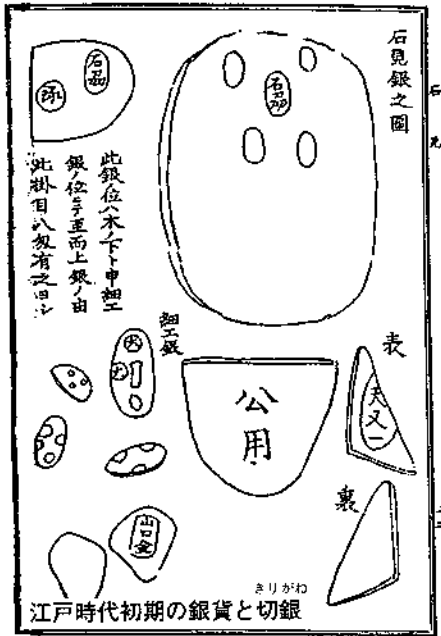 石見銀之圖
石見
此銀ノ位八木ノ下ト申細工
銀ノ位ニテ至而上銀ノ由
此掛目八匁有之由シ
細工銀
公用
表
天又一
裏
山口
きりがね
江戸時代初期の銀貨と切銀